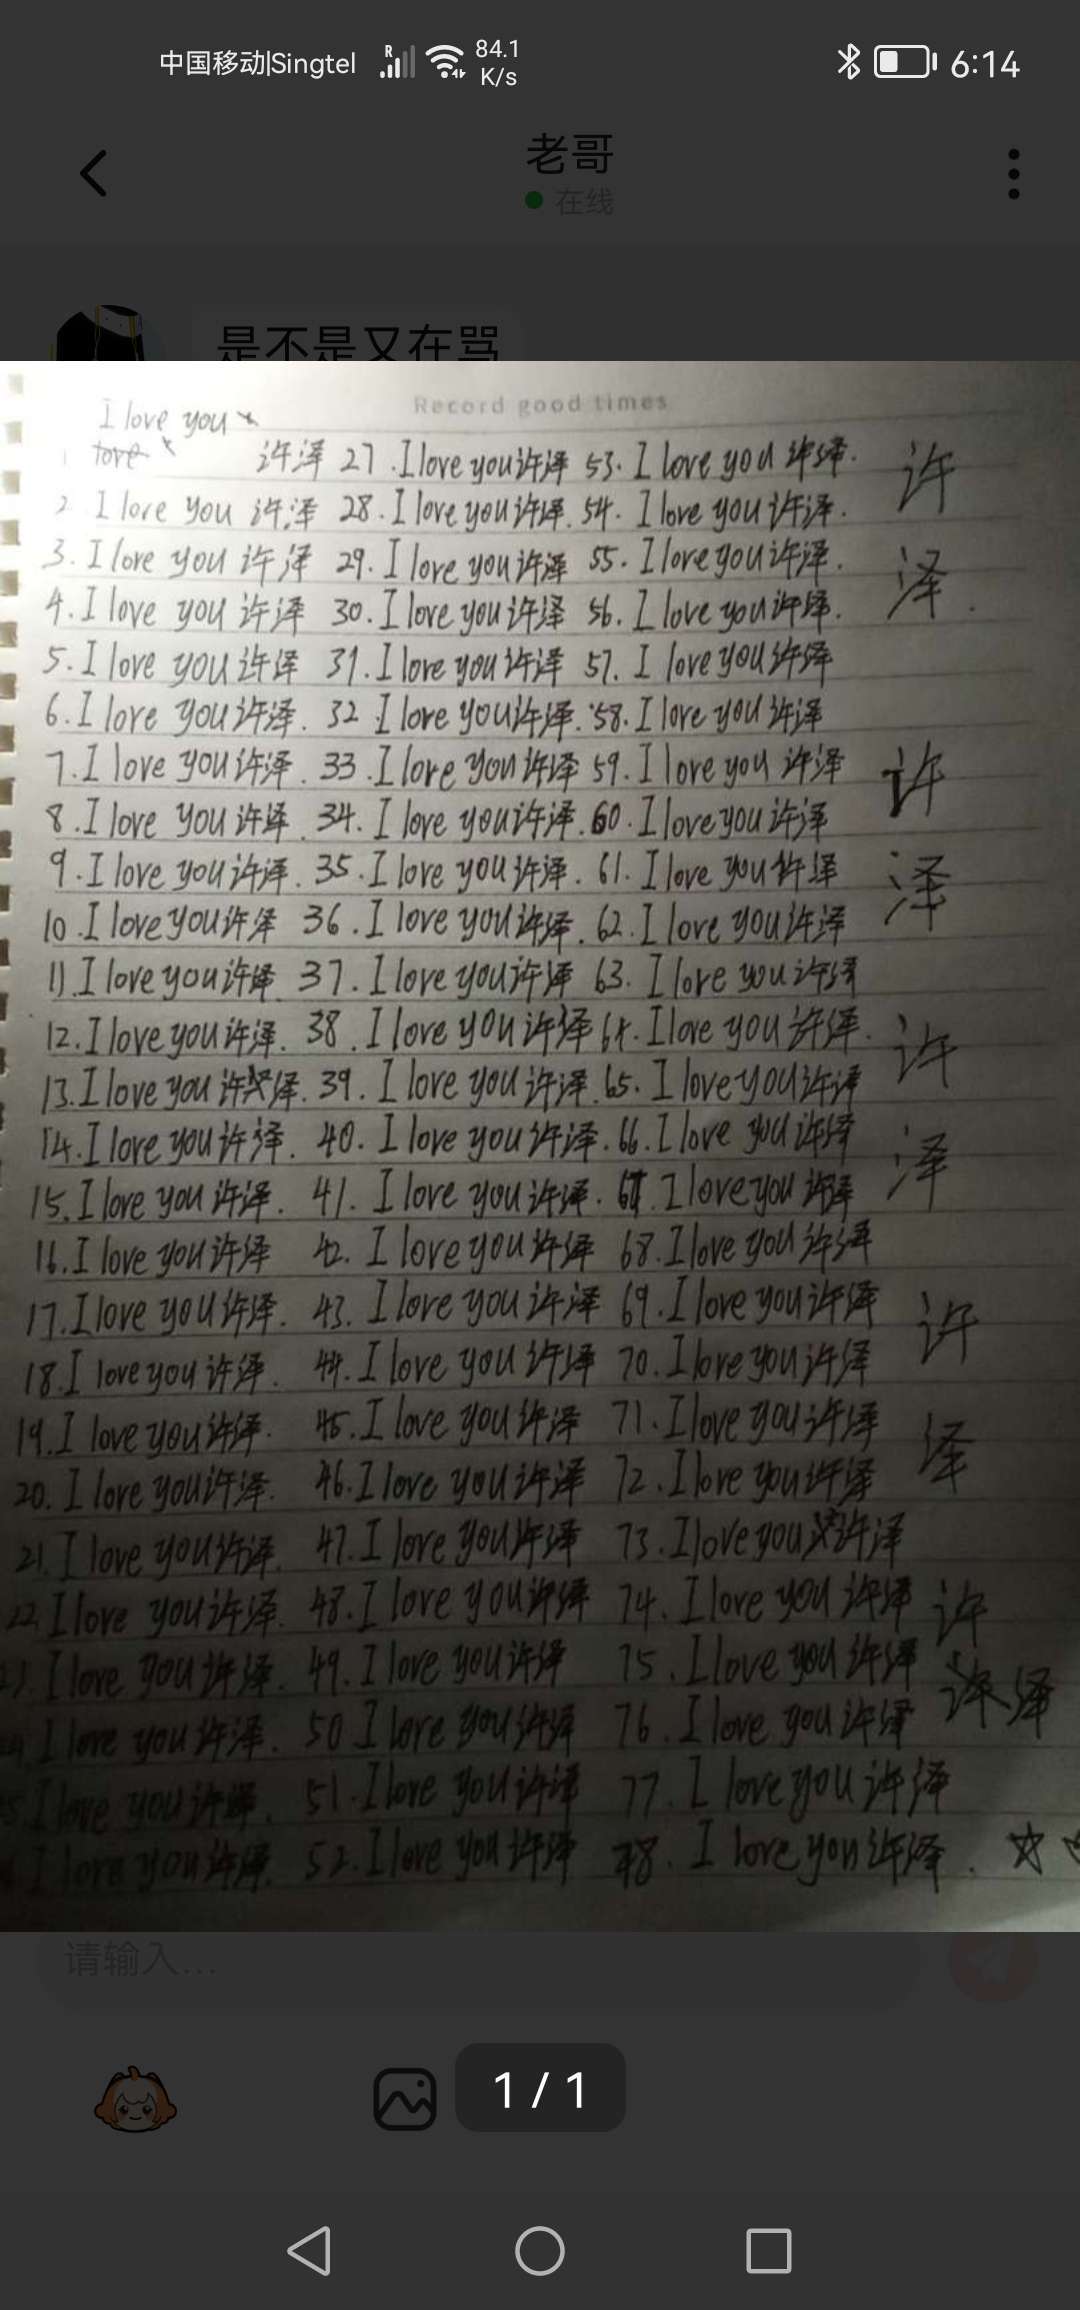 中国移动|Singtel R 84.1 K/s 6:14
老哥
在线
是不是又在骂
Record good times
I love you
love 许泽 27. I love you 许泽 53. I love you 许泽. 许
2 I love you 许泽 28. I love you 许泽. 54. I love you 许泽.
3. I love you 许泽 29. I love you 许泽 55. I love you 许泽. 泽.
4. I love you 许泽 30. I love you 许泽 56. I love you 许泽.
5. I love you 许泽 31. I love you 许泽 57. I love you 许泽
6. I love you 许泽. 32. I love you 许泽. 58. I love you 许泽
7. I love you 许泽. 33. I love you 许泽 59. I love you 许泽 许
8. I love you 许泽. 34. I love you 许泽. 60. I love you 许泽
9. I love you 许泽. 35. I love you 许泽. 61. I love you 许泽 泽
10. I love you 许泽 36. I love you 许泽. 62. I love you 许泽
11. I love you 许泽. 37. I love you 许泽 63. I love you 许泽
12. I love you 许泽. 38. I love you 许泽 64. I love you 许泽. 许
13. I love you 许泽. 39. I love you 许泽. 65. I love you 许泽
14. I love you 许泽. 40. I love you 许泽. 66. I love you 许泽 泽
15. I love you 许泽. 41. I love you 许泽. 67. I love you 许泽
16. I love you 许泽 42. I love you 许泽 68. I love you 许泽
17. I love you 许泽. 43. I love you 许泽 69. I love you 许泽 许
18. I love you 许泽. 44. I love you 许泽 70. I love you 许泽
19. I love you 许泽. 45. I love you 许泽 71. I love you 许泽 泽
20. I love you 许泽. 46. I love you 许泽 72. I love you 许泽
21. I love you 许泽. 47. I love you 许泽 73. I love you 许泽
22. I love you 许泽. 48. I love you 许泽 74. I love you 许泽 许
I love you 许泽. 49. I love you 许泽 75. I love you 许泽 许泽
I love you 许泽. 50 I love you 许泽 76. I love you 许泽
I love you 许泽. 51. I love you 许泽 77. I love you 许泽
I love you 许泽. 52. I love you 许泽 78. I love you 许泽.
请输入...
1 / 1